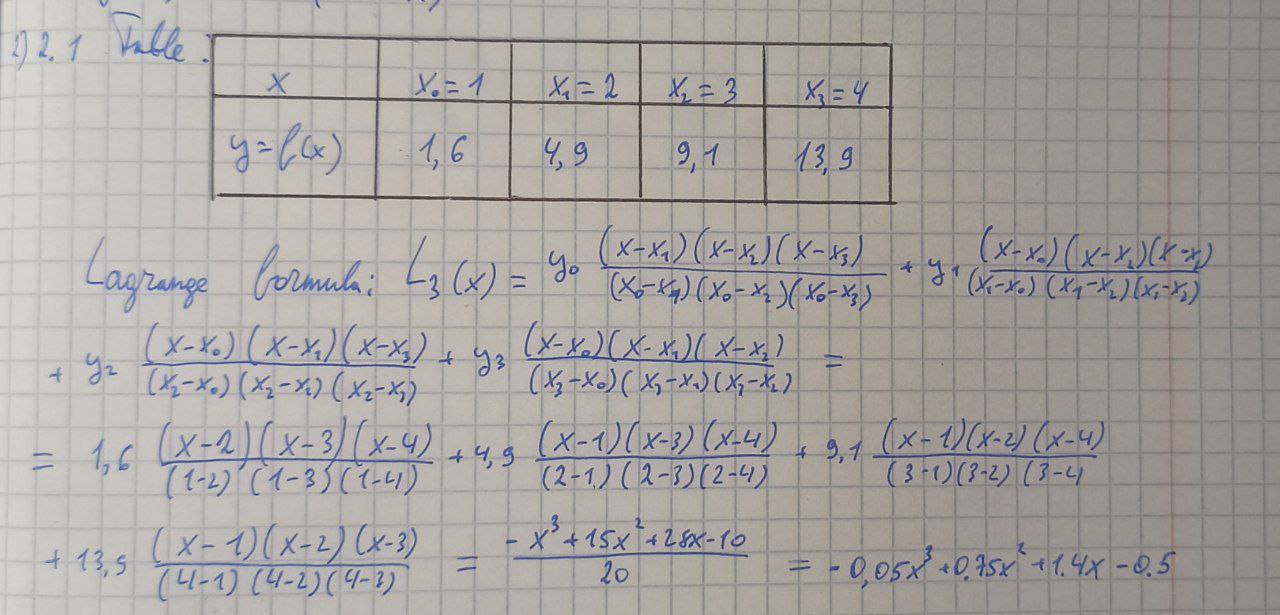 1) 2.1 Table:
x x₀=1 x₁=2 x₂=3 x₃=4
y=f(x) 1,6 4,9 9,1 13,9
Lagrange formula: L₃(x) = y₀ (x-x₁)(x-x₂)(x-x₃)/(x₀-x₁)(x₀-x₂)(x₀-x₃) + y₁ (x-x₀)(x-x₂)(x-x₃)/(x₁-x₀)(x₁-x₂)(x₁-x₃)
+ y₂ (x-x₀)(x-x₁)(x-x₃)/(x₂-x₀)(x₂-x₁)(x₂-x₃) + y₃ (x-x₀)(x-x₁)(x-x₂)/(x₃-x₀)(x₃-x₁)(x₃-x₂) =
= 1,6 (x-2)(x-3)(x-4)/(1-2)(1-3)(1-4) + 4,9 (x-1)(x-3)(x-4)/(2-1)(2-3)(2-4) + 9,1 (x-1)(x-2)(x-4)/(3-1)(3-2)(3-4
+ 13,9 (x-1)(x-2)(x-3)/(4-1)(4-2)(4-3) = -x³+15x²+28x-10/20 = -0,05x³+0.75x²+1.4x-0.5